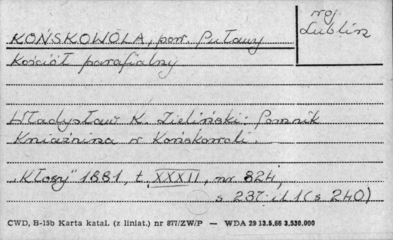 KOŃSKOWOLA, pow. Puławy
woj. Lublin
Kościół parafialny
Władysław K. Zieliński: Pomnik
Kniaźnina w Końskowoli.
"Kłosy" 1881, t. XXXII, nr. 824,
s 237: il. 1 (s 240)
CWD, B-15b Karta katal. (z liniat.) nr 877/ZW/P — WDA 29 13.5.66 3,530,000